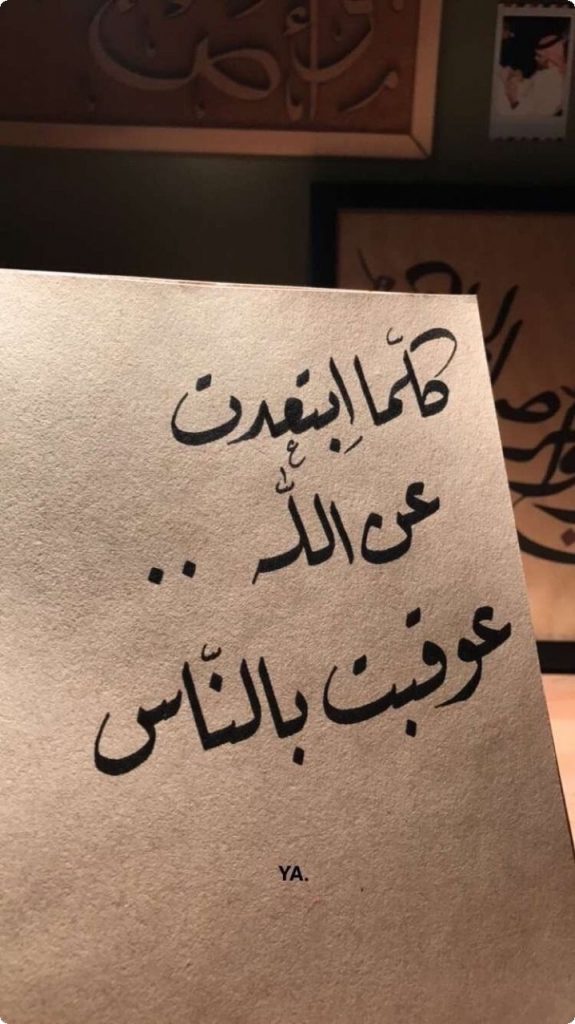 كلّما اِبتعدت
عن اللّه ..
عوقبت بالنّاس
YA.